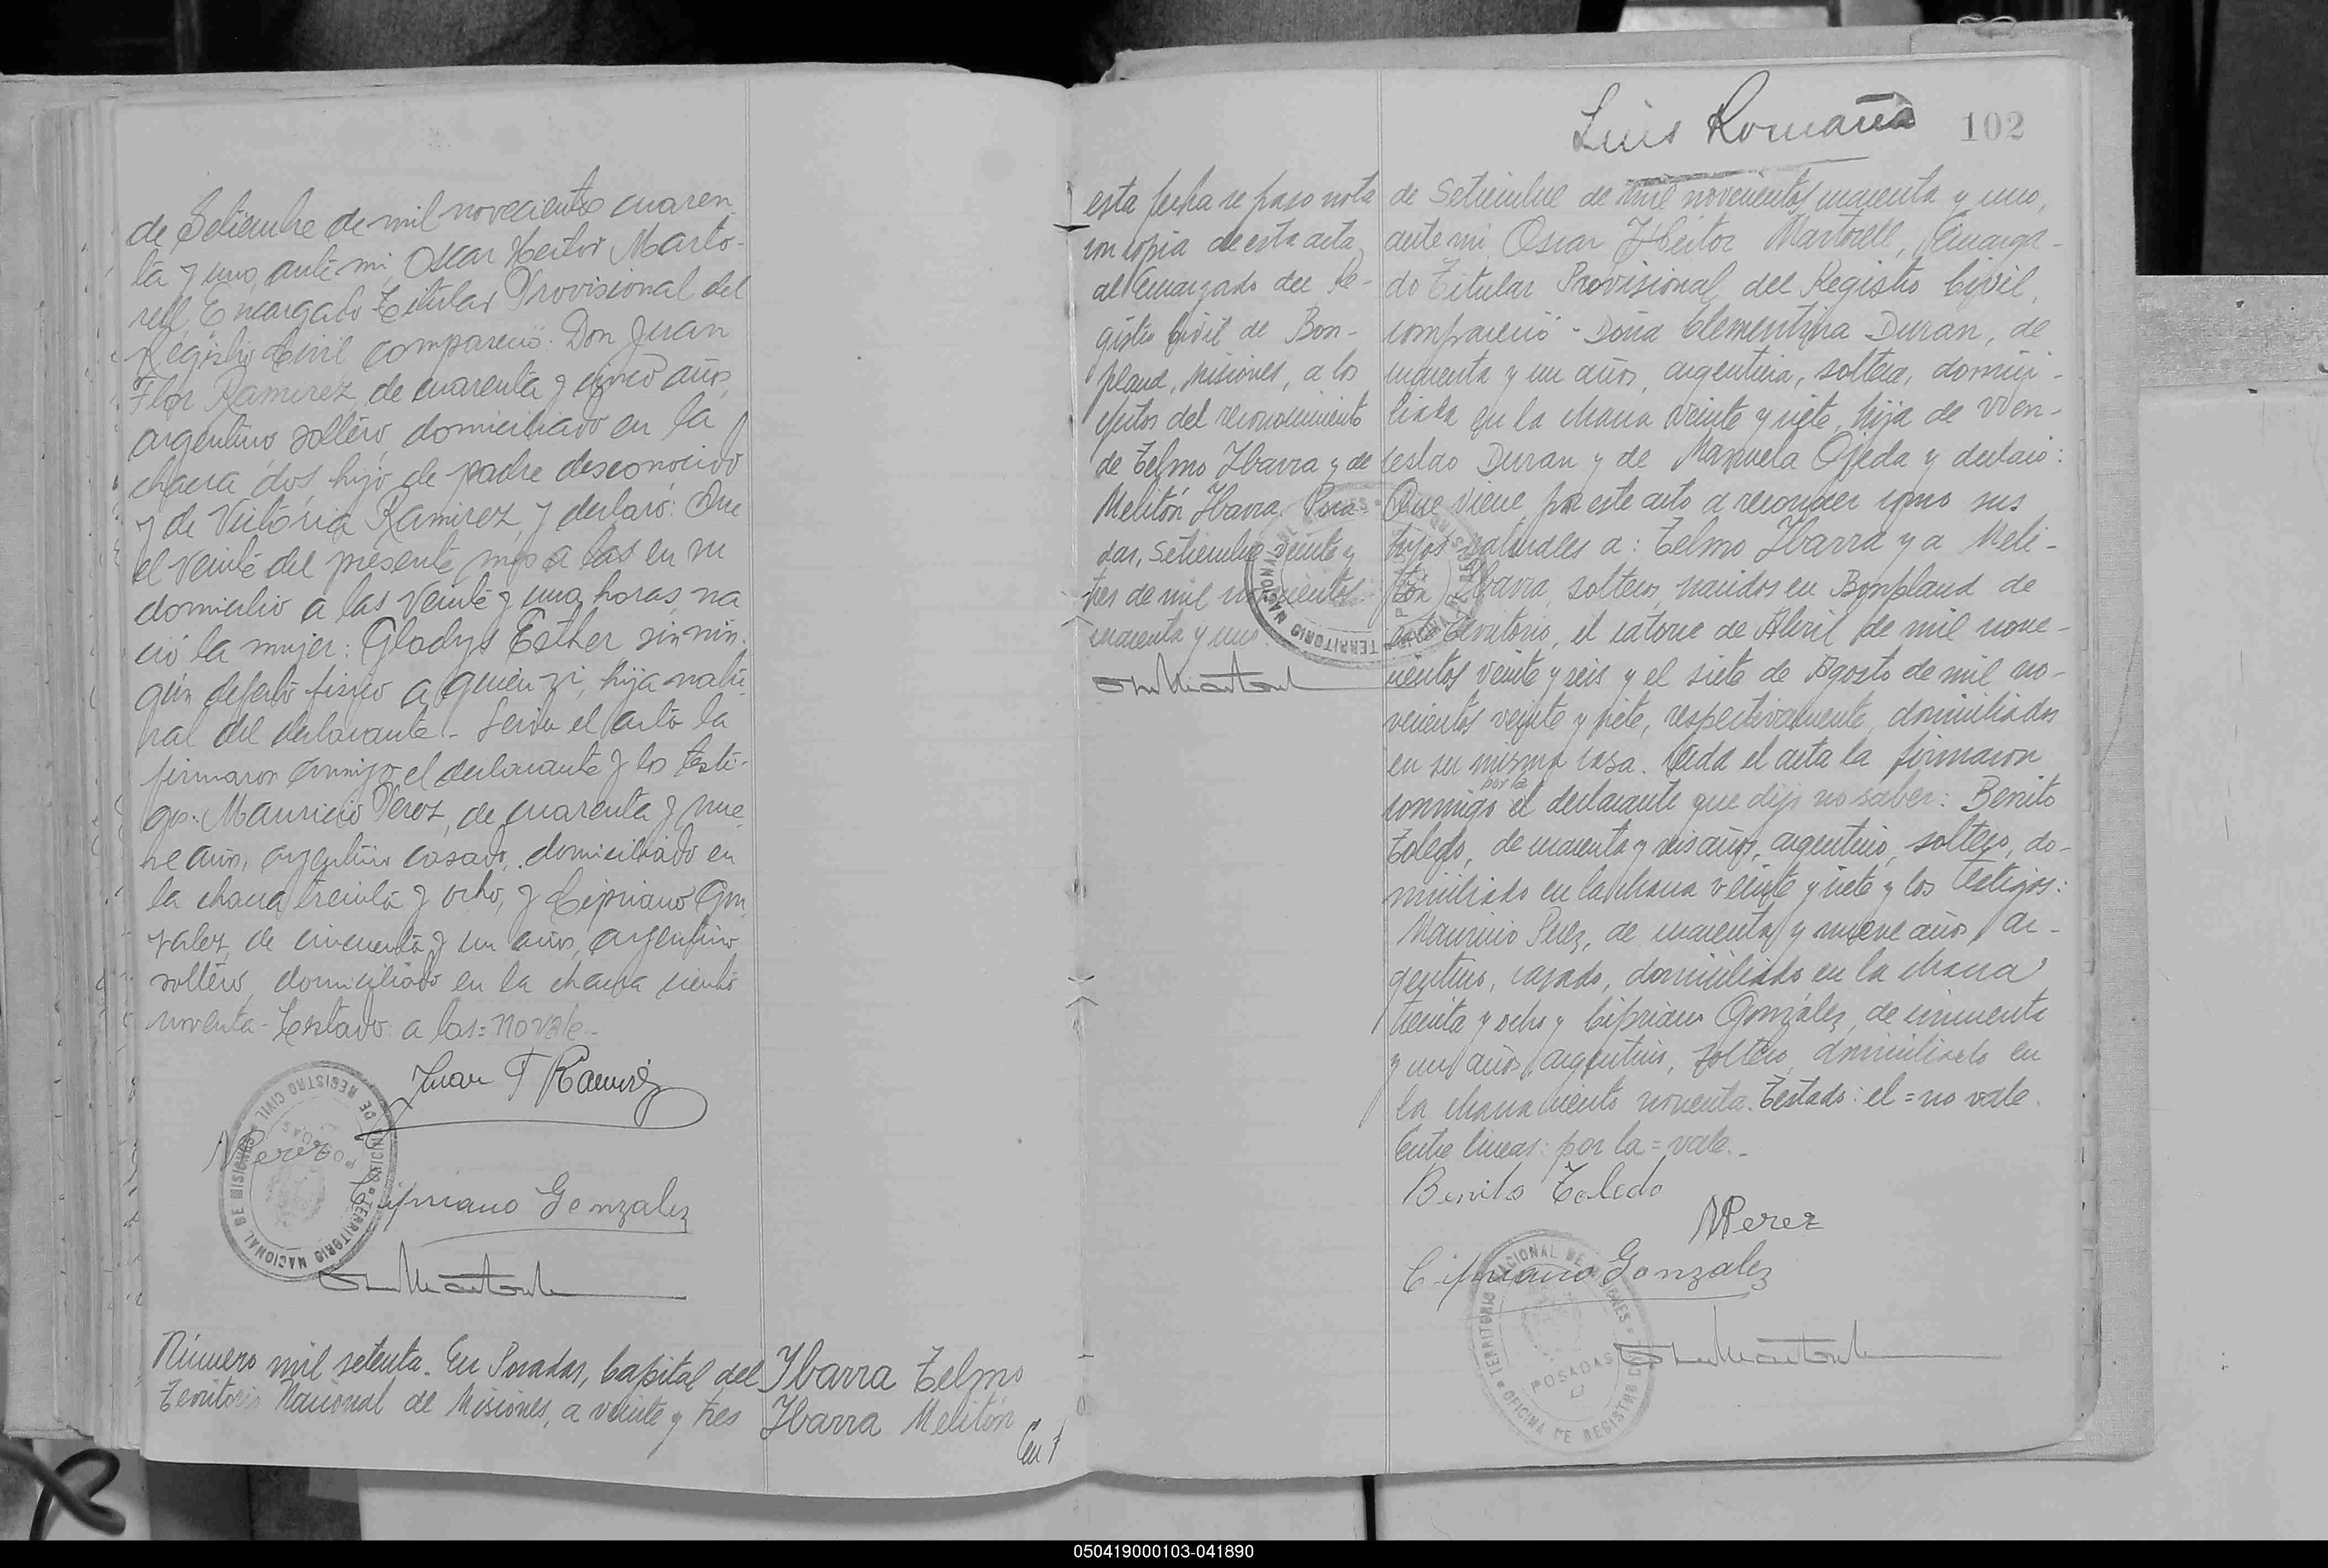 de Setiembre de mil novecientos cuaren
ta y uno, ante mi, Oscar Hector Marto-
rell, Encargado Titular Provisional del
Registro Civil compareció: Don Juan
Flor Ramirez, de cuarenta y cinco años,
argentino soltero, domiciliado en la
chacra dos, hijo de padre desconocido
y de Victoria Ramirez, y declaró: Que
el veinte del presente mes a las en su
domicilio a las veinte y una horas, na
ció la mujer: Gladys Esther sin nin-
gún defecto fisico a quien vi, hija natu-
ral del declarante.- Leida el acta la
firmaron conmigo el declarante y los testi-
gos: Mauricio Perez, de cuarenta y nue
ve años, argentino casado, domiciliado en
la chacra treinta y ocho, y Cipriano Gon
zalez, de cincuenta y un años, argentino
soltero, domiciliado en la chacra ciento
noventa.- Testado: a las = no vale.-
Juan F Ramirez
MPerez
Cipriano Gonzalez
OFICINA DE REGISTRO CIVIL
TERRITORIO NACIONAL DE MISIONES
POSADAS
Número mil setenta. En Posadas, Capital del
Territorio Nacional de Misiones, a veinte y tres
Ibarra Telmo
Ibarra Melitón
En
Luis Romaña
102
esta fecha se paso nota
con copia de esta acta
al Encargado del Re-
gistro Civil de Bon-
pland, Misiones, a los
efectos del reconocimiento
de Telmo Ibarra y de
Melitón Ibarra. Posa-
das, Setiembre veinte y
tres de mil novecientos
cuarenta y uno
TERRITORIO NACIONAL DE MISIONES
de Setiembre de mil novecientos cuarenta y uno,
ante mi, Oscar Héctor Martorell, Encarga-
do Titular Provisional del Registro Civil,
compareció - Doña Clementina Duran, de
cuarenta y un años, argentina, soltera, domici-
liada en la chacra veinte y siete, hija de Wen-
ceslao Duran y de Manuela Ojeda y declaró:
Que viene por este acto a reconocer como sus
hijos naturales a: Telmo Ibarra y a Meli-
tón Ibarra, solteros, nacidos en Bonpland de
este Territorio, el catorce de Abril de mil nove-
cientos veinte y seis y el siete de Agosto de mil no-
vecientos veinte y siete, respectivamente, domiciliados
en su misma casa. Leida el acta la firmaron
por la
conmigo el declarante que dijo no saber: Benito
Toledo, de cuarenta y seis años, argentino, soltero, do-
miciliado en la chacra veinte y siete y los testigos:
Mauricio Perez, de cuarenta y nueve años, ar-
gentino, casado, domiciliado en la chacra
treinta y ocho y Cipriano González, de cincuenta
y un años, argentino, soltero, domiciliado en
la chacra ciento noventa. Testado: el = no vale.
Entre lineas: por la = vale.-
Benito Toledo
MPerez
Cipriano Gonzalez
TERRITORIO NACIONAL DE MISIONES
OFICINA DE REGISTRO CIVIL
POSADAS
050419000103-041890